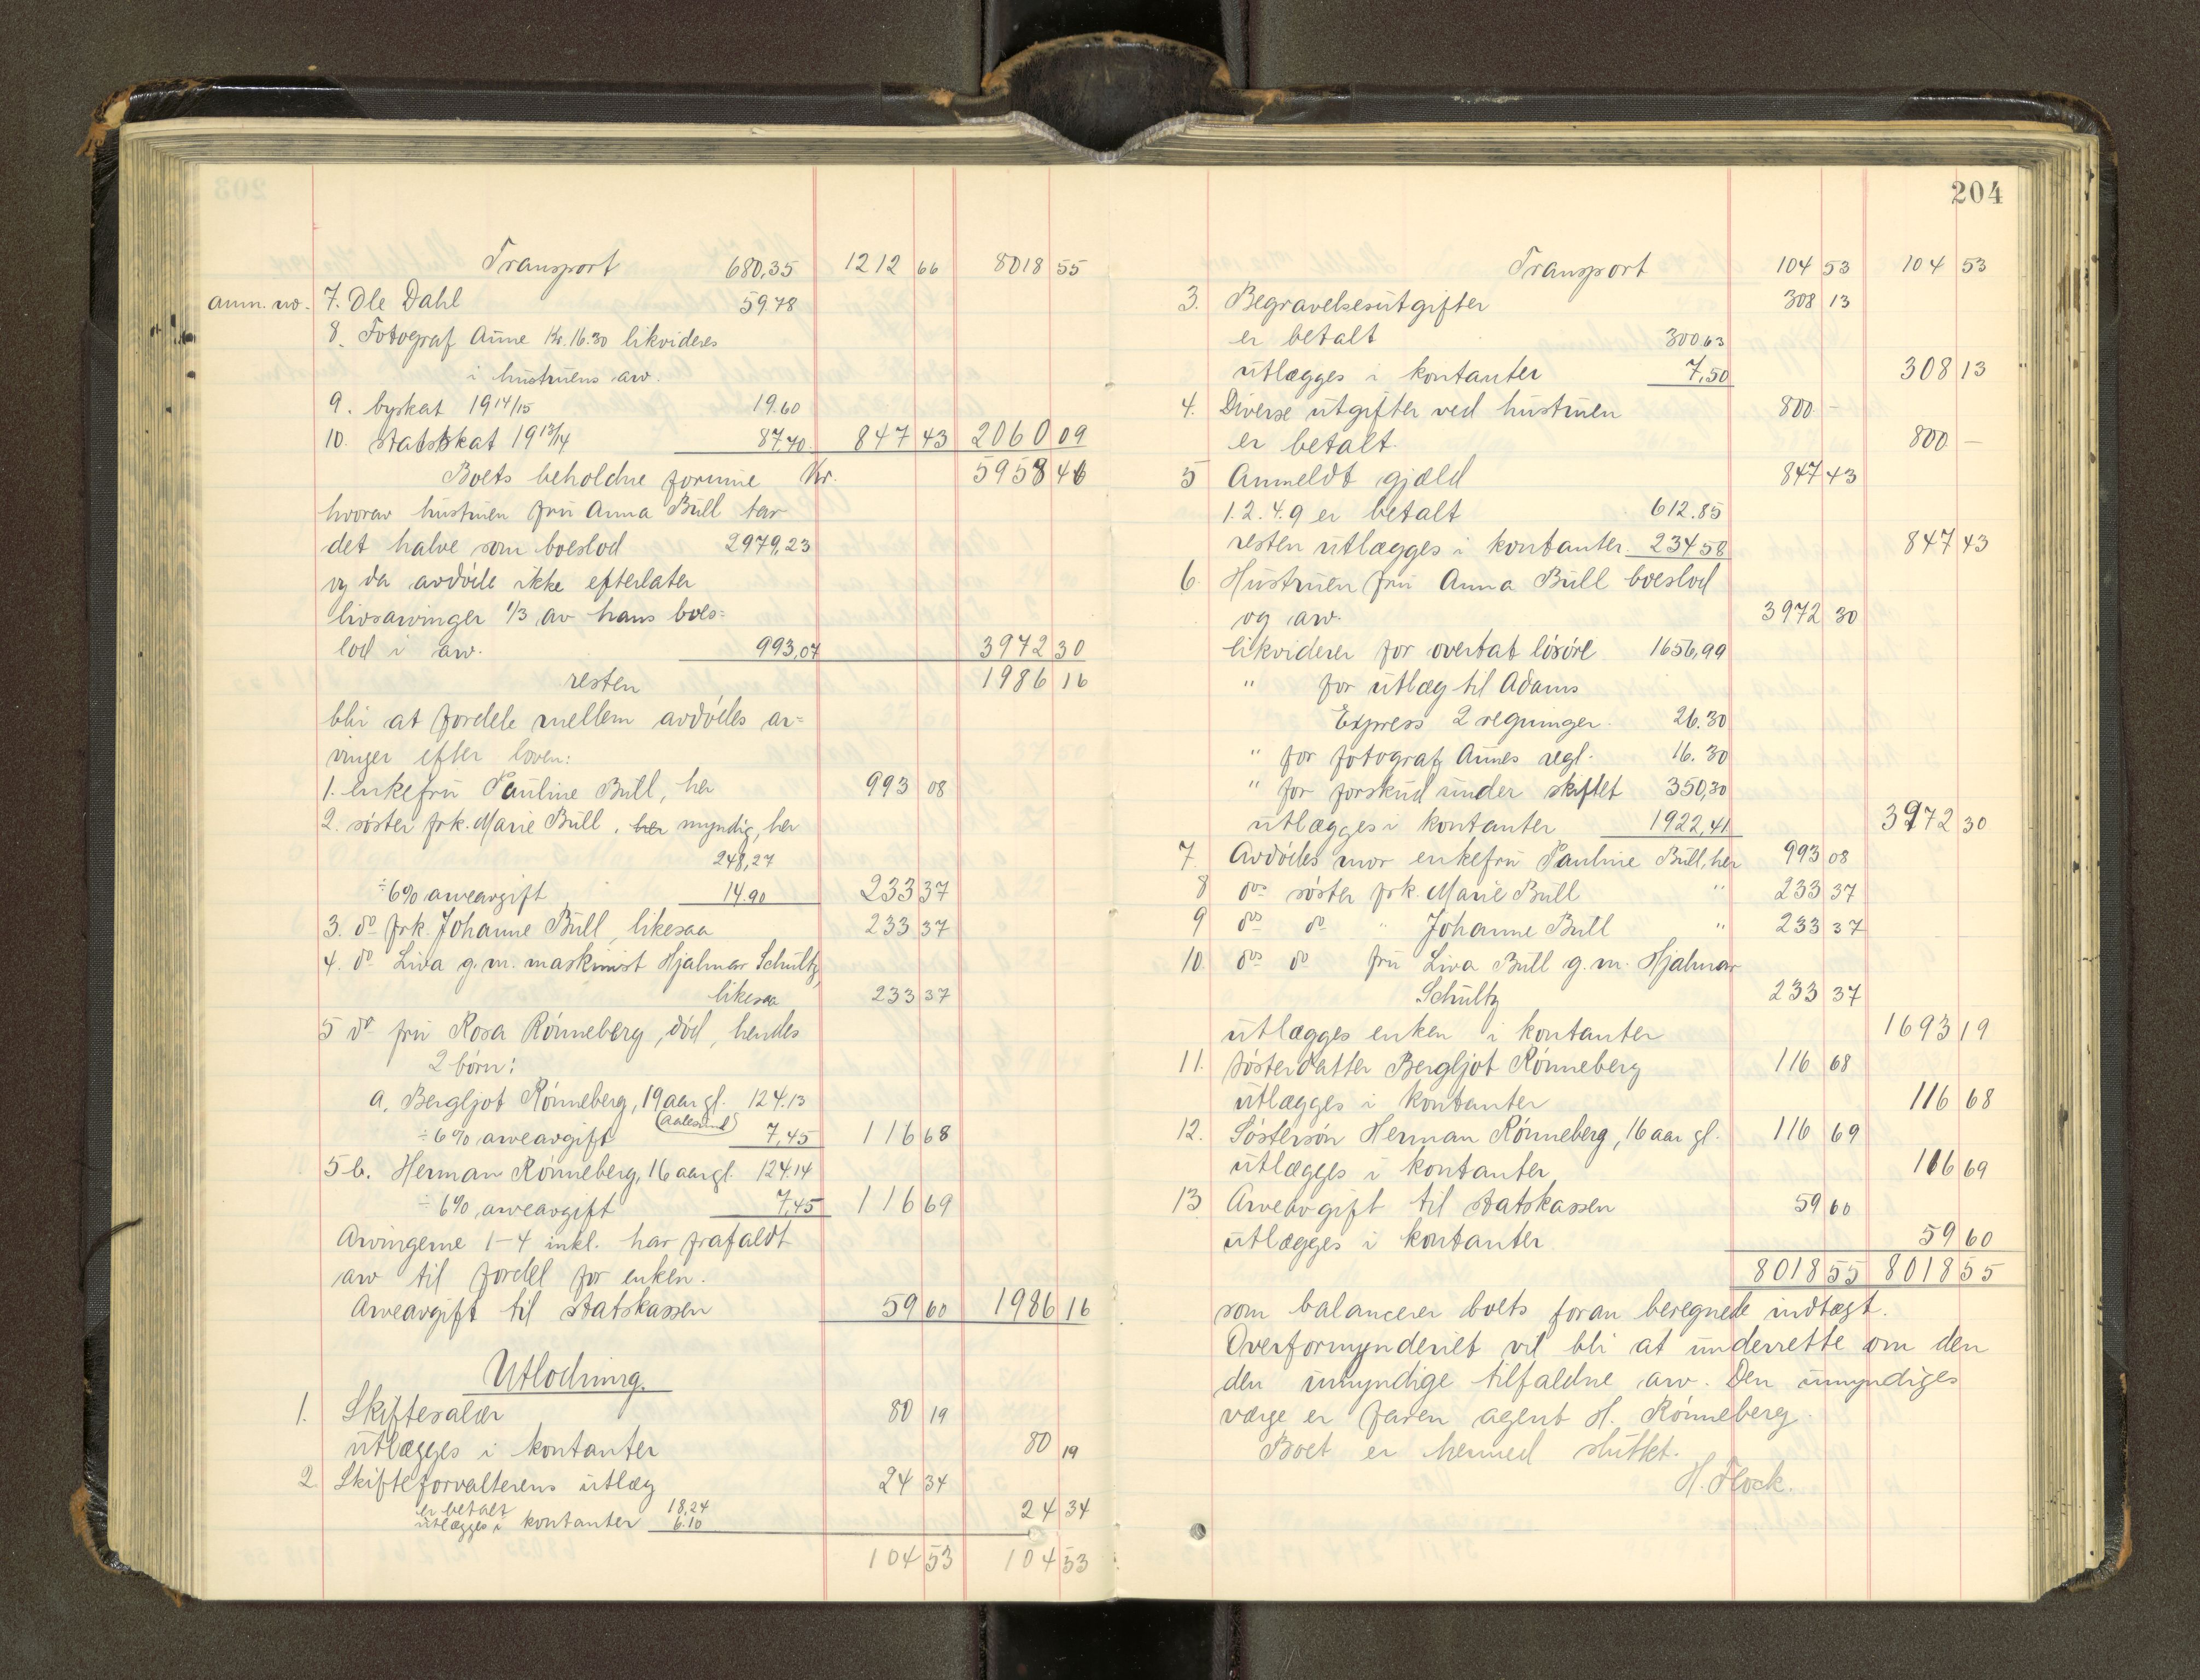 Transport 680,35 1212 66 8018 55
anm. no. 7. Ole Dahl 59 78
8. Fotograf Aune Kr. 16.30 likvideres
i hustruens arv.
9. byskat 1914/15 19.60
10. statsskat 1913/14 87,70 847 43 2060 09
Boets beholdne formue Kr. 5958 46
hvorav hustruen fru Anna Bull tar
det halve som boeslod 2979,23
og da avdöde ikke efterlater
livsarvinger 1/3 av hans boes-
lod i arv. 993,07 3972 30
resten 1986 16
bli at fordele mellem avdödes ar-
vinger efter loven:
1. enkefru Pauline Bull, her 993 08
2. söster frk. Marie Bull, her myndig, her
248,27
÷ 6% arveavgift 14.90 233 37
3. do frk. Johanne Bull, likesaa 233 37
4. do Liva g. m. maskinist Hjalmar Schultz,
likesaa 233 37
5 do fru Rosa Rönneberg, död, hendes
2 börn:
a. Bergljot Rönneberg, 19 aar gl. 124.13
(Aalesund)
÷ 6% arveavgift 7,45 116 68
5 b. Herman Rönneberg, 16 aar gl. 124.14
÷ 6% arveavgift 7,45 116 69
Arvingerne 1-4 inkl. har frafaldt
arv til fordel for enken.
Arveavgift til statskassen 59 60 1986 16
Utlodning.
1. Skiftesalær 80 19
utlægges i kontanter 80 19
2 Skifteforvalterens utlæg 24 34
er betalt 18,24
utlægges i kontanter 6.10 24 34
104 53 104 53
204
Transport 104 53 104 53
3. Begravelsesutgifter 308 13
er betalt 300.63
utlægges i kontanter 7,50 308 13
4. Diverse utgifter ved hustruen 800 -
er betalt. 800 -
5 Anmeldt gjæld 847 43
1. 2. 4. 9 er betalt 612.85
resten utlægges i kontanter 234 58 847 43
6. Hustruen fru Anna Bull boeslod
og arv. 3972 30
likviderer for overtat lösöre 1656,99
" for utlæg til Adams
Express 2 regninger. 26.30
" for fotograf Aunes regl. 16.30
" for forskud under skiftet 350,30
utlægges i kontanter 1922,41 3972 30
7. Avdödes mor enkefru Pauline Bull, her 993 08
8 dos söster frk. Marie Bull " 233 37
9 dos do " Johanne Bull " 233 37
10. dos do fru Liva Bull g. m. Hjalmar
Schultz 233 37
utlægges enken i kontanter 1693 19
11. Sösterdatter Bergljot Rönneberg 116 68
utlægges i kontanter 116 68
12. Söstersön Herman Rönneberg, 16 aar gl. 116 69
utlægges i kontanter 116 69
13 Arveavgift til statskassen 59 60
utlægges i kontanter 59 60
8018 55 8018 55
som balancerer boets foran beregnede indtægt.
Overformynderiet vil bli at underrette om den
den umyndige tilfaldne arv. Den umyndiges
værge er faren agent H. Rönneberg.
Boet er hermed sluttet.
H. Flock.